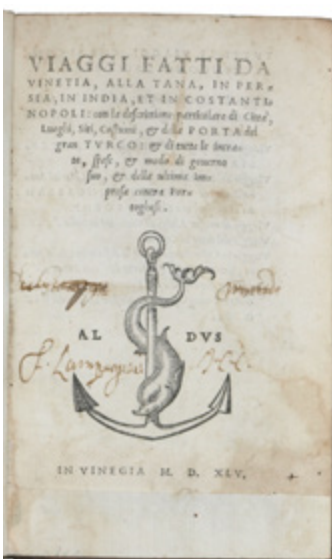 VIAGGI FATTI DA
VINETIA, ALLA TANA, IN PER-
SIA, IN INDIA, ET IN COSTANTI-
NOPOLI: con la descrittione particolare di Città,
Luoghi, Siti, Costumi, & della PORTA del
gran TVRCO: & di tutte le Intra-
te, spese, & modo di gouerno
suo, & della ultima Im-
presa contra Por-
toghesi.
AL DVS
IN VINEGIA M. D. XLV.